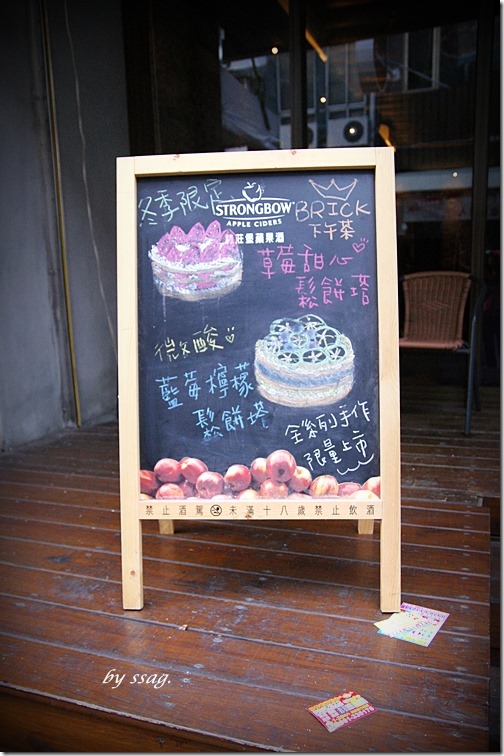 冬季限定
STRONGBOW
APPLE CIDERS
詩莊堡蘋果酒
BRICK
下午茶
草莓甜心
鬆餅塔
微酸
藍莓檸檬
鬆餅塔
全系列手作
限量上市
禁止酒駕 未滿十八歲禁止飲酒
by ssag.